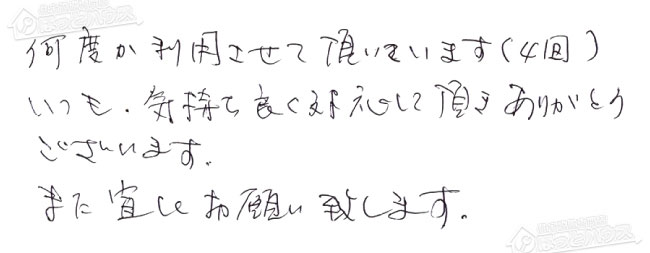 何度か利用させて頂いています(4回)
いつも、気持ち良く対応して頂きありがとう
ございます。
また宜しくお願い致します。